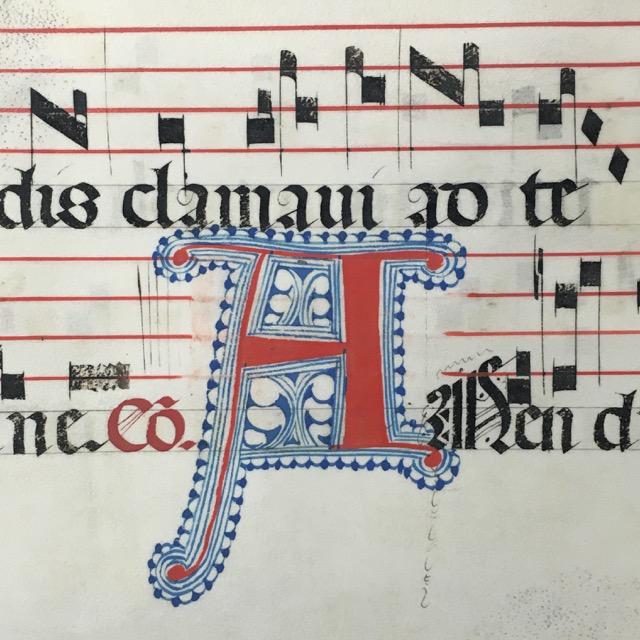 dis clamavi ad te
ne. Cō. AMen d